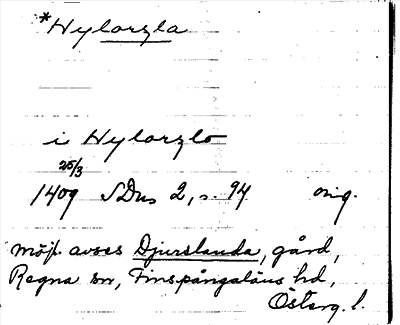 *Hylarzla
i Hylarzlo
25/3
1409 SDns 2, s. 94 orig.
möjl. avses Djurslanda, gård,
Regna sn, Finspångaläns hd,
Österg. l.